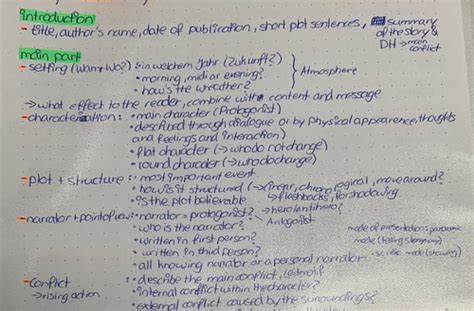 introduction
- title, author's name, date of publication, short plot sentences, summary
of the story &
DH → main
conflict
main part
- setting (wann+wo?) : in welchem Jahr (Zukunft?)
• morning, midi or evening?
• how's the wheather?
} Atmosphere
→ what effect to the reader, combine with content and message
- characterization: • main character (Protagonist)
• described through dialogue or by physical appearence, thoughts
and feelings and interaction)
• flat character (→ who do not change)
• round character (→ who do change)
- plot + structure : • most important event
• how is it structured (→ linear, chronological, move around?
↳ flashbacks, forshadowing
• is the plot believable
- narrator + point of view: • narrator = protagonist? → hero/antihero?
Antagonist
• who is the narrator?
• written in first person?
• written in third person?
• all knowing narrator or a personal narrator
mode of presentation: panoramic
mode (telling the story)
- scenic mode (showing)
- Conflict : • describe the main conflict, leitmotif
→ rising action • internal conflict within the character?
• external conflict caused by the surroundings?